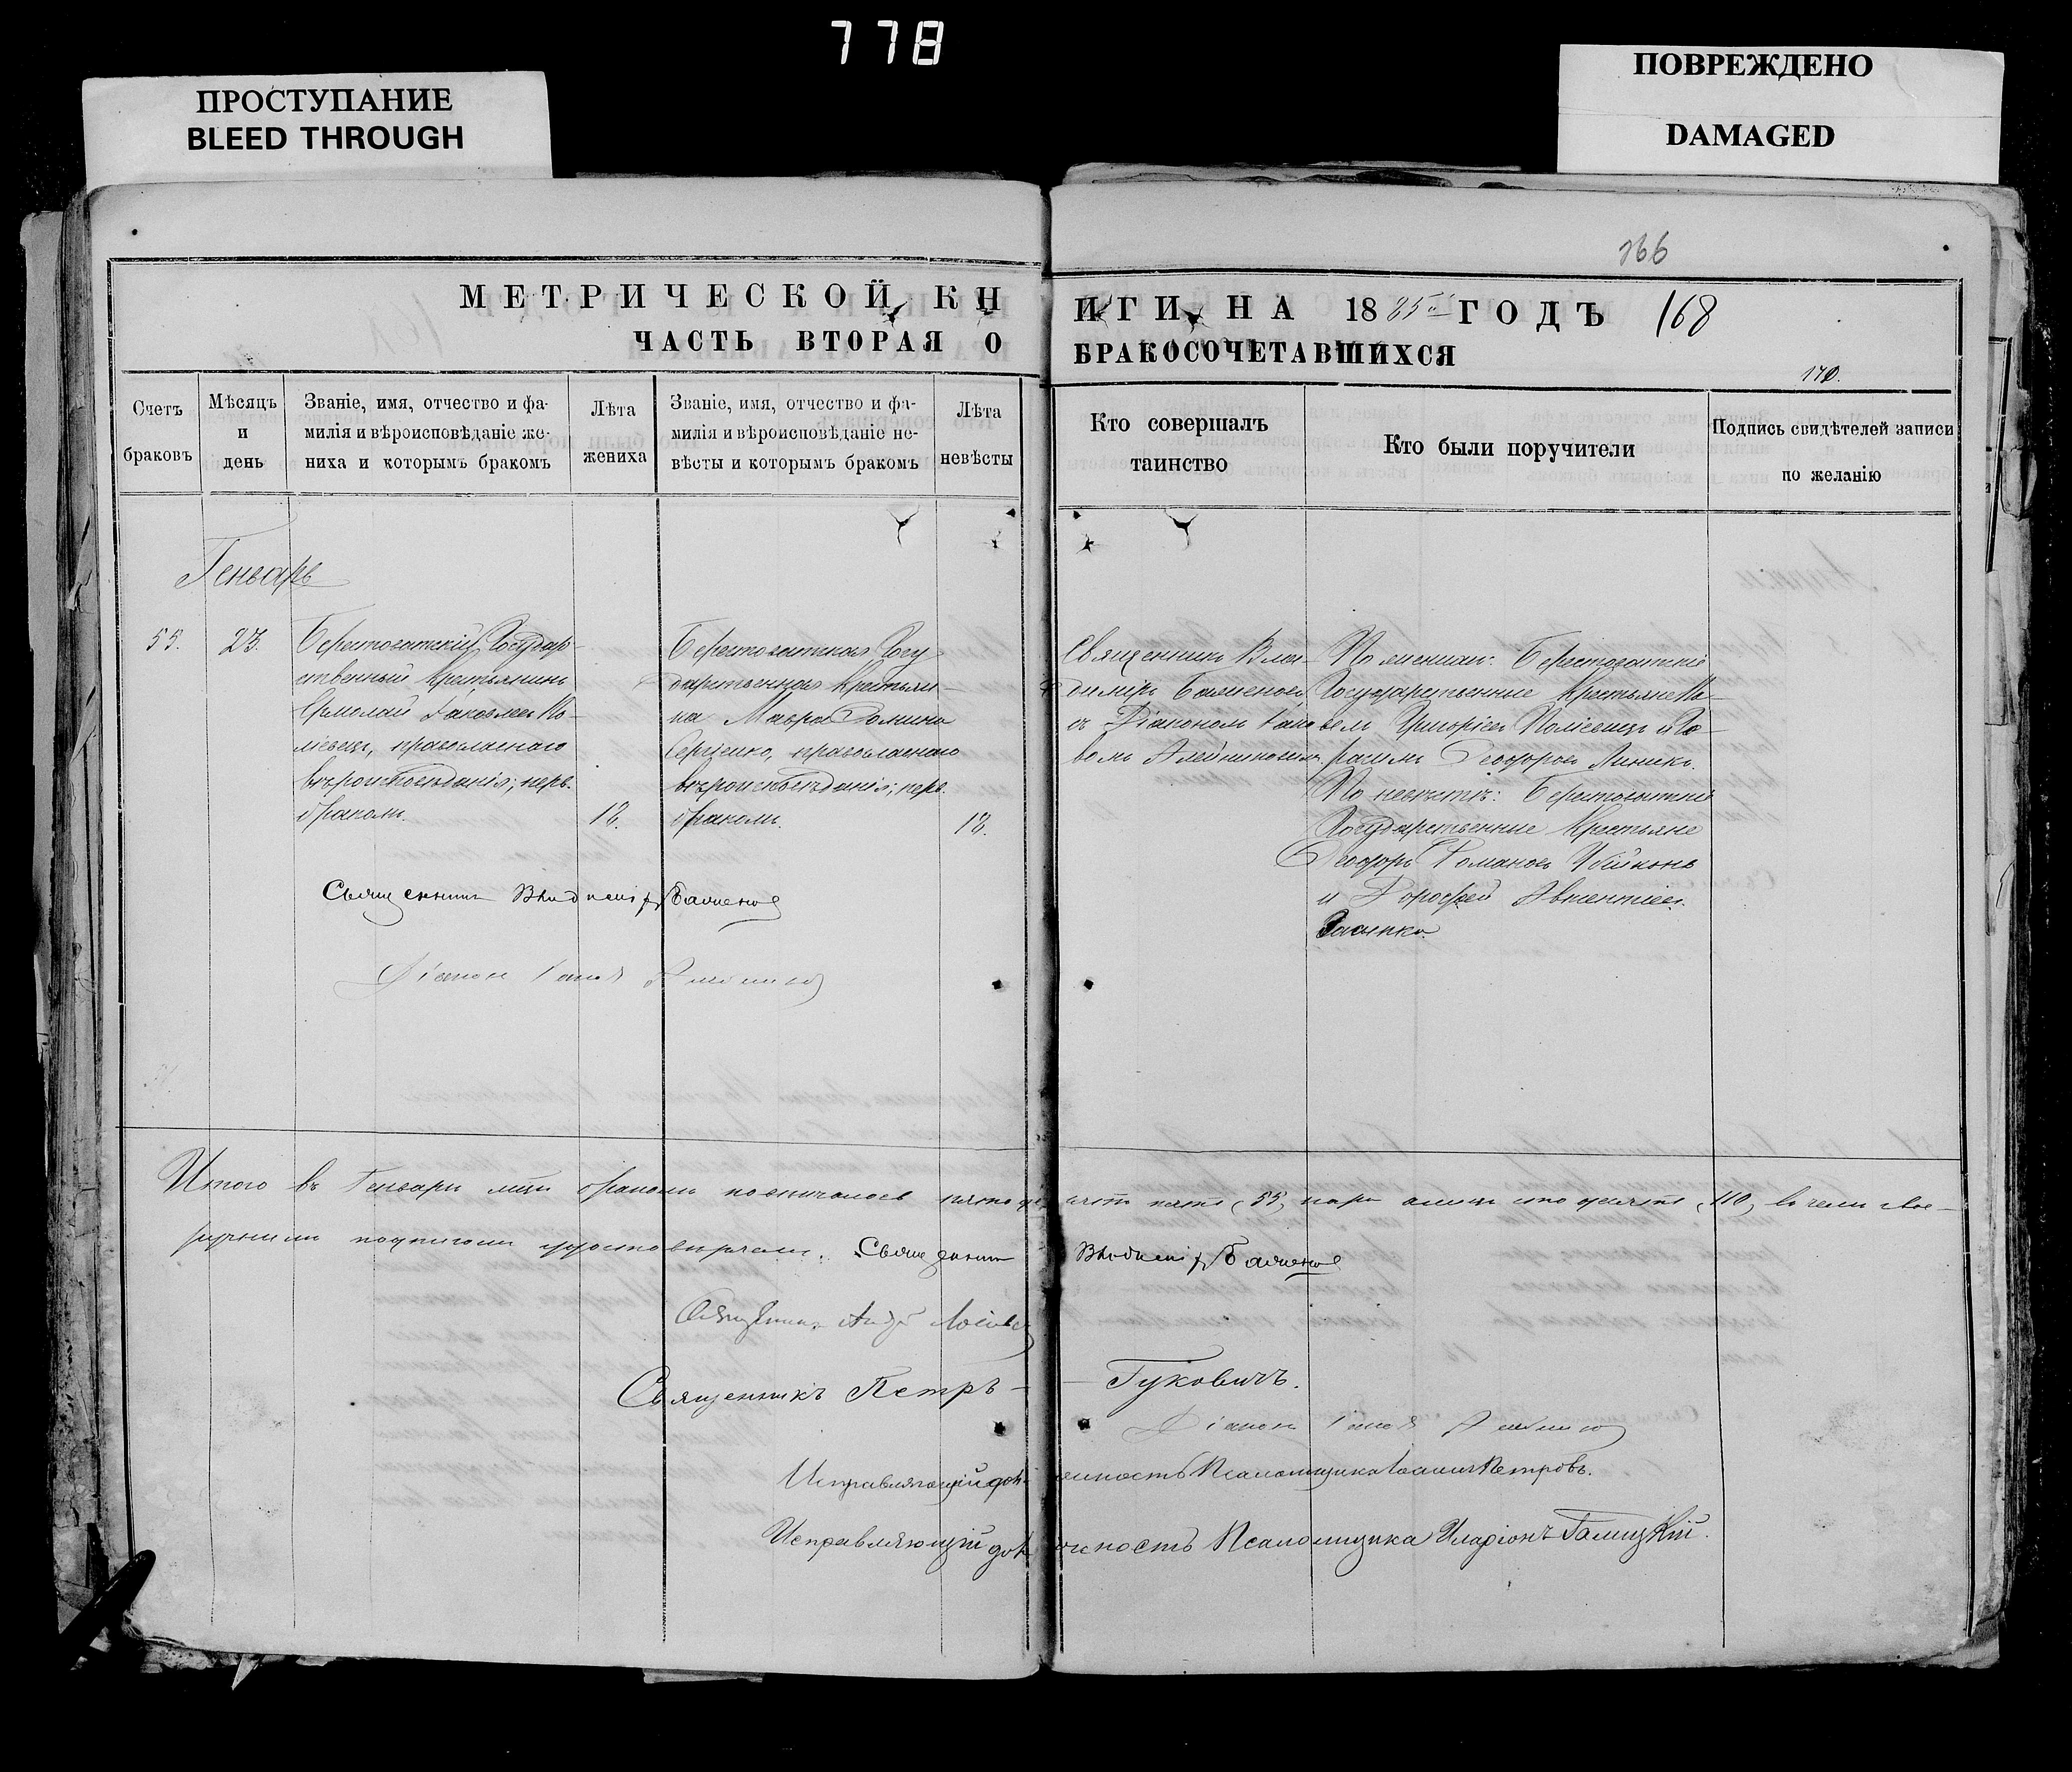 778
ПРОСТУПАНИЕ
BLEED THROUGH
ПОВРЕЖДЕНО
DAMAGED
166
МЕТРИЧЕСКОЙ КНИГИ НА 1885й ГОДЪ 168
ЧАСТЬ ВТОРАЯ О БРАКОСОЧЕТАВШИХСЯ
170.
Счетъ
браковъ
Мѣсяцъ
и
день
Званіе, имя, отчество и фа-
милія и вѣроисповѣданіе же-
ниха и которымъ бракомъ
Лѣта
жениха
Званіе, имя, отчество и фа-
милія и вѣроисповѣданіе не-
вѣсты и которымъ бракомъ
Лѣта
невѣсты
Кто совершалъ
таинство
Кто были поручители
Подпись свидѣтелей записи
по желанію
Генварь
55.
23.
Берестоватскій Государ-
ственный Крестьянинъ
Ермолай Іаковлевъ По-
лієвець, православнаго
вѣроисповѣданія; перв.
бракомъ.
18.
Берестоватская Госу
дарственная Крестьян-
ка Мавра Фомина
Сергіенко, православнаго
вѣроисповѣданія; перв.
бракомъ.
18.
Священникъ Вла-
димиръ Баженовъ
съ Діакономъ Іако
вомъ Алейниковымъ.
По женихѣ: Берестоватскіе
Государственные Крестьяне
Григоріевъ Полієвець и
Феодоровъ Линикъ.
По невѣстѣ: Берестоватскіе
Государственные Крестьяне
Феодоръ Романовъ
и Дорофей Авксентіевъ
Священникъ Владимиръ Баженов
Діаконъ Іаковъ
Итого въ Генварѣ мцѣ бракомъ повѣнчалось пятьдесятъ пять (55) паръ а лицъ сто десять (110) въ чемъ свое-
ручными подписами удостовѣряемъ. Священник Владимиръ Баженов
Священникъ
Священникъ Петръ Гуковичъ.
Діаконъ Іаковъ
Исправляющій должность Псаломщика Іоаннъ Петровъ.
Исправляющій должность Псаломщика Иларіонъ Галицкій.